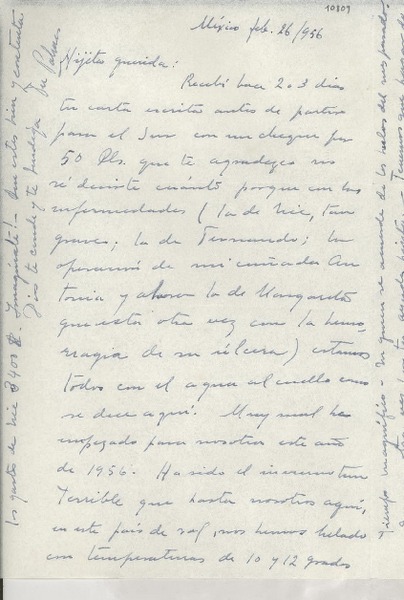 10809
México feb. 26/956
Hijita querida:
Recibí hace 2 o 3 dias
tu carta escrita antes de partir
para el Sur con un cheque por
50 Dls. que te agradezco no
sé decirte cuánto porque con las
enfermedades (la de Vic, tan
grave; la de Fernando; la
operación de mi cuñada An
tonia y ahora la de Margarita
que está otra vez con la hemo
rragia de su úlcera) estamos
todos con el agua al cuello como
se dice aquí. Muy mal ha
empezado para nosotros este año
de 1956. Ha sido el invierno tan
terrible que hasta nosotros aquí,
en este país de sol, nos hemos helado
con temperaturas de 10 y 12 grados
los gastos de Vic $400 Imagínate!
bien y contenta
Dios te cuide y te bendiga
Tiempo magnífico